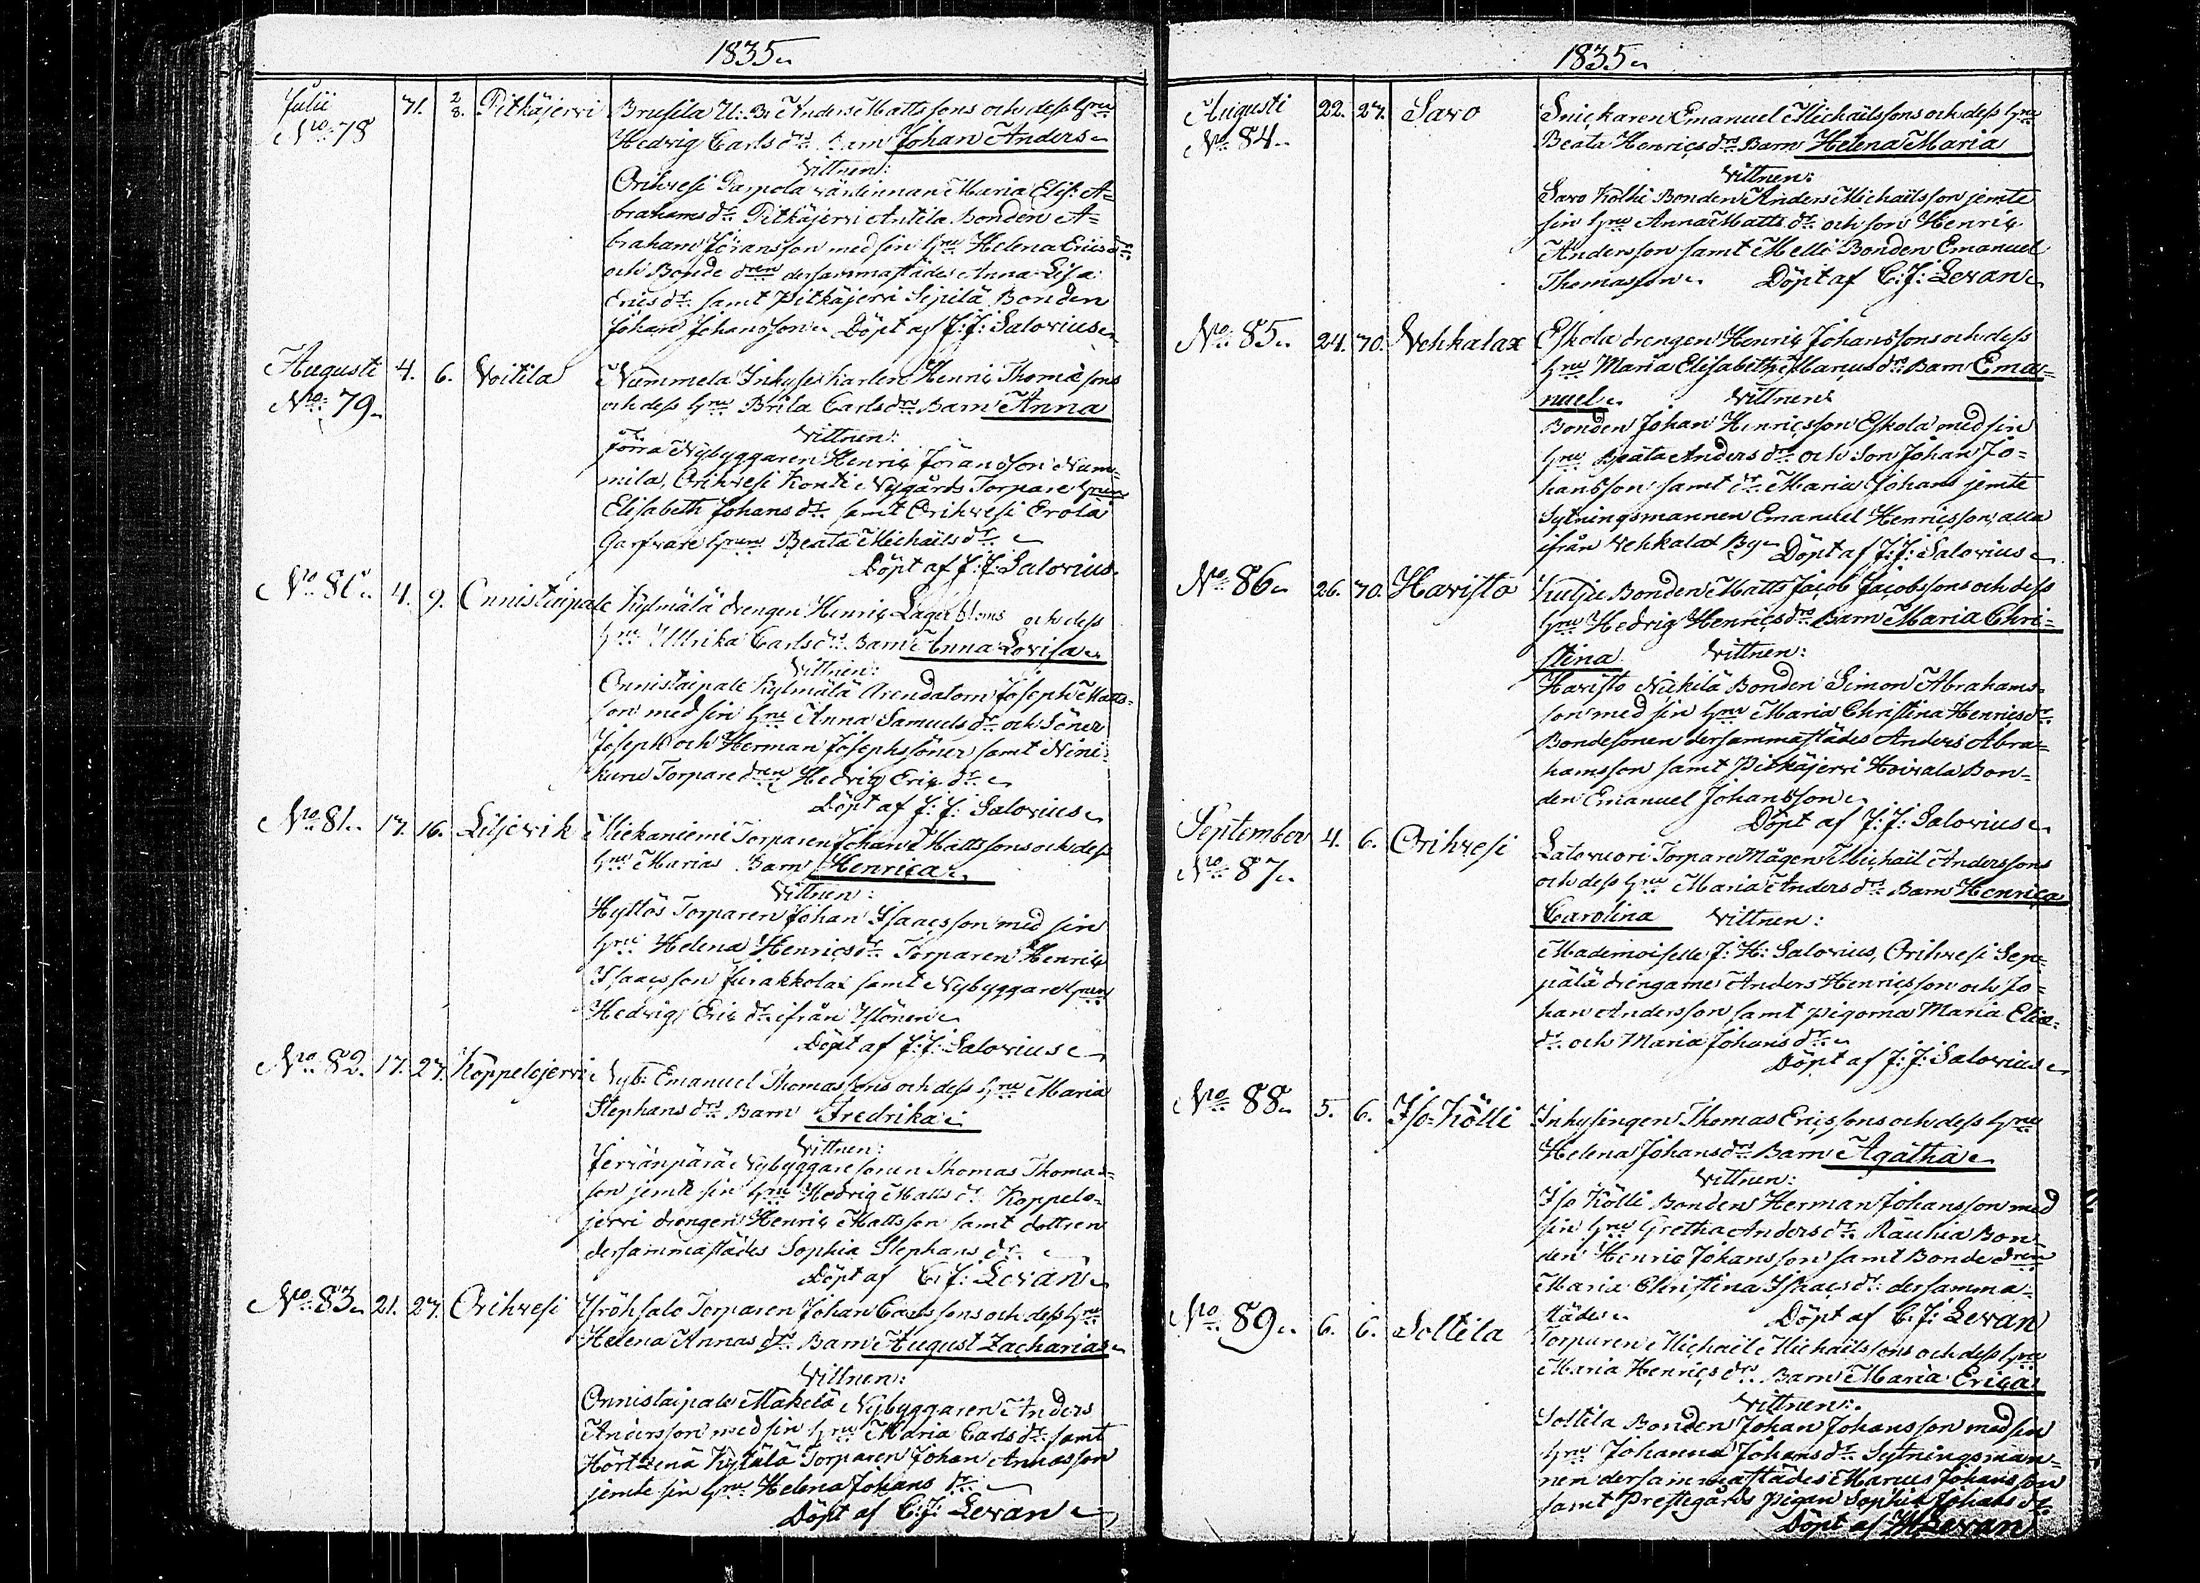 1835
Julii 71. 2/8. Pitkäjervi Brusila U: B: Anders Mattssons och dess Hru
No 78 Hedvig Carlsdrs Barn Johan Anders
Vittnen:
Orihvesi Parpola värdinnan Maria Elis: A=
brahams dr Pitkäjervi Antila Bonden A=
braham Jöransson med sin Hru Helena Ericsdr
och Bonde dren dersammastädes Anna Lisa
Erics dr samt Pitkäjervi Sipilä Bonden
Johan Johansson Döpt af J: J: Salovius
Augusti 4. 6. Voitila Nummela Inhyses karlen Henric Thomæsons
No 79 och dess Hru Brita Carlsdrs Barn Anna
Vittnen:
förra Nybyggaren Henric Jöransson Num=
mila, Orihvesi Konti Nygårds Torpare Hrun
Elisabeth Johans dr samt Orihvesi Erola
Garfvare Hrun Beata Michaels dr
Döpt af J: J: Salovius
No 80 4. 9. Onnistaipale Kylmälä drengen Henric Lagerbloms och dess
Hru Ullrika Carlsdrs Barn Anna Lovisa
Vittnen:
Onnistaipale Kylmälä Arendatorn Joseph Matts=
son med sin Hru Anna Samuels dr och Söner
Joseph och Herman Josephssöner samt Nini=
kuru Torpare dren Hedvig Eric dr
Döpt af J: J: Salovius
No 81 17. 16. Liljevik Miekaniemi Torparen Johan Mattssons och dess
Hru Marias Barn Henrica
Vittnen:
Hyttös Torparen Johan Isaacsson med sin
Hru Helena Henrics dr Torparen Henric
Isaacsson Jurakkola samt Nybyggare Hrun
Hedvig Eric dr ifrån Ylönen
Döpt af J: J: Salovius
No 82. 17. 27. Koppelojervi Nyb: Emanuel Thomassons och dess Hru Maria
Stephans drs Barn Fredrika
Vittnen:
Jervänpärä Nybyggare sonen Thomas Thomas=
son jemte sin Hru Hedvig Matts dr Koppelo=
jervi drengen Henric Mattsson samt dottren
dersammastädes Sophia Stephans dr
Döpt af C: J: Levan
No 83 21. 27. Orihvesi Yröhsalo Torparen Johan Carlssons och dess Hru
Helena Annas drs Barn August Zacharias
Vittnen:
Onnistaipale Mäkelä Nybyggaren Anders
Andersson med sin Hru Maria Carls dr samt
Hörtzenä Kytälä Torparen Johan Annasson
jemte sin Hru Helena Johans dr
Döpt af C: J: Levan
1835
Augusti 22. 27. Savo Snickaren Emanuel Michaelssons och dess Hru
No 84 Beata Henricsdrs Barn Helena Maria
Vittnen:
Savo Kölhi Bonden Anders Michaelsson jemte
sin Hru Anna Matts dr och son Henric
Andersson samt Melli Bonden Emanuel
Thomasson Döpt af C: J: Levan
No 85 24. 70. Vehkalax Eskola drengen Henric Johanssons och dess
Hru Maria Elisabeth Marcus drs Barn Ema=
nuel Vittnen:
Bonden Johan Henricsson Eskola med sin
Hru Beata Anders dr och Son Johan Jo=
hansson samt dr Maria Johans jemte
Sytningsmannen Emanuel Henricsson, alla
ifrån Vehkalax By Döpt af J: J: Salovius
No 86 26. 70. Havisto Kutju Bonden Matts Jacob Jacobssons och dess
Hru Hedvig Henricsdrs Barn Maria Chri=
stina Vittnen:
Havisto Nickilä Bonden Simon Abrahams=
son med sin Hru Maria Christina Henricsdr
Bondesonen dersammastädes Anders Abra=
hamsson samt Pitkäjervi Hoivala Bon=
den Emanuel Johansson
Döpt af J: J: Salovius
September 4. 6. Orihvesi Latovuori Torpare Mågen Michael Anderssons
No 87 och dess Hru Maria Anders drs Barn Henrica
Carolina Vittnen:
Mademoiselle J: H: Salovius, Orihvesi Sep=
pälä drengarne Anders Henricsson och Jo=
han Andersson samt pigorna Maria Eliæ=
dr och Maria Johans dr
Döpt af J: J: Salovius
No 88 5. 6. Iso-Kölli Inhysingen Thomas Ericssons och dess Hru
Helena Johansdrs Barn Agatha
Vittnen:
Iso Kölli Bonden Herman Johansson med
sin Hru Gretha Anders dr Räuhia Bon
den Henric Johansson samt Bonde dren
Maria Christina Isaacs dr dersamma=
städes Döpt af C: J: Levan
No 89 6. 6. Soltila Torparen Michael Michaelssons och dess Hru
Maria Henrics drs Barn Maria Erica
Vittnen:
Soltila Bonden Johan Johansson med sin
Hru Johanna Johans dr Sytningsman=
nen dersammastädes Marcus Johansson
samt Prestegårds Pigan Sophia Johans dr
Döpt af Levan